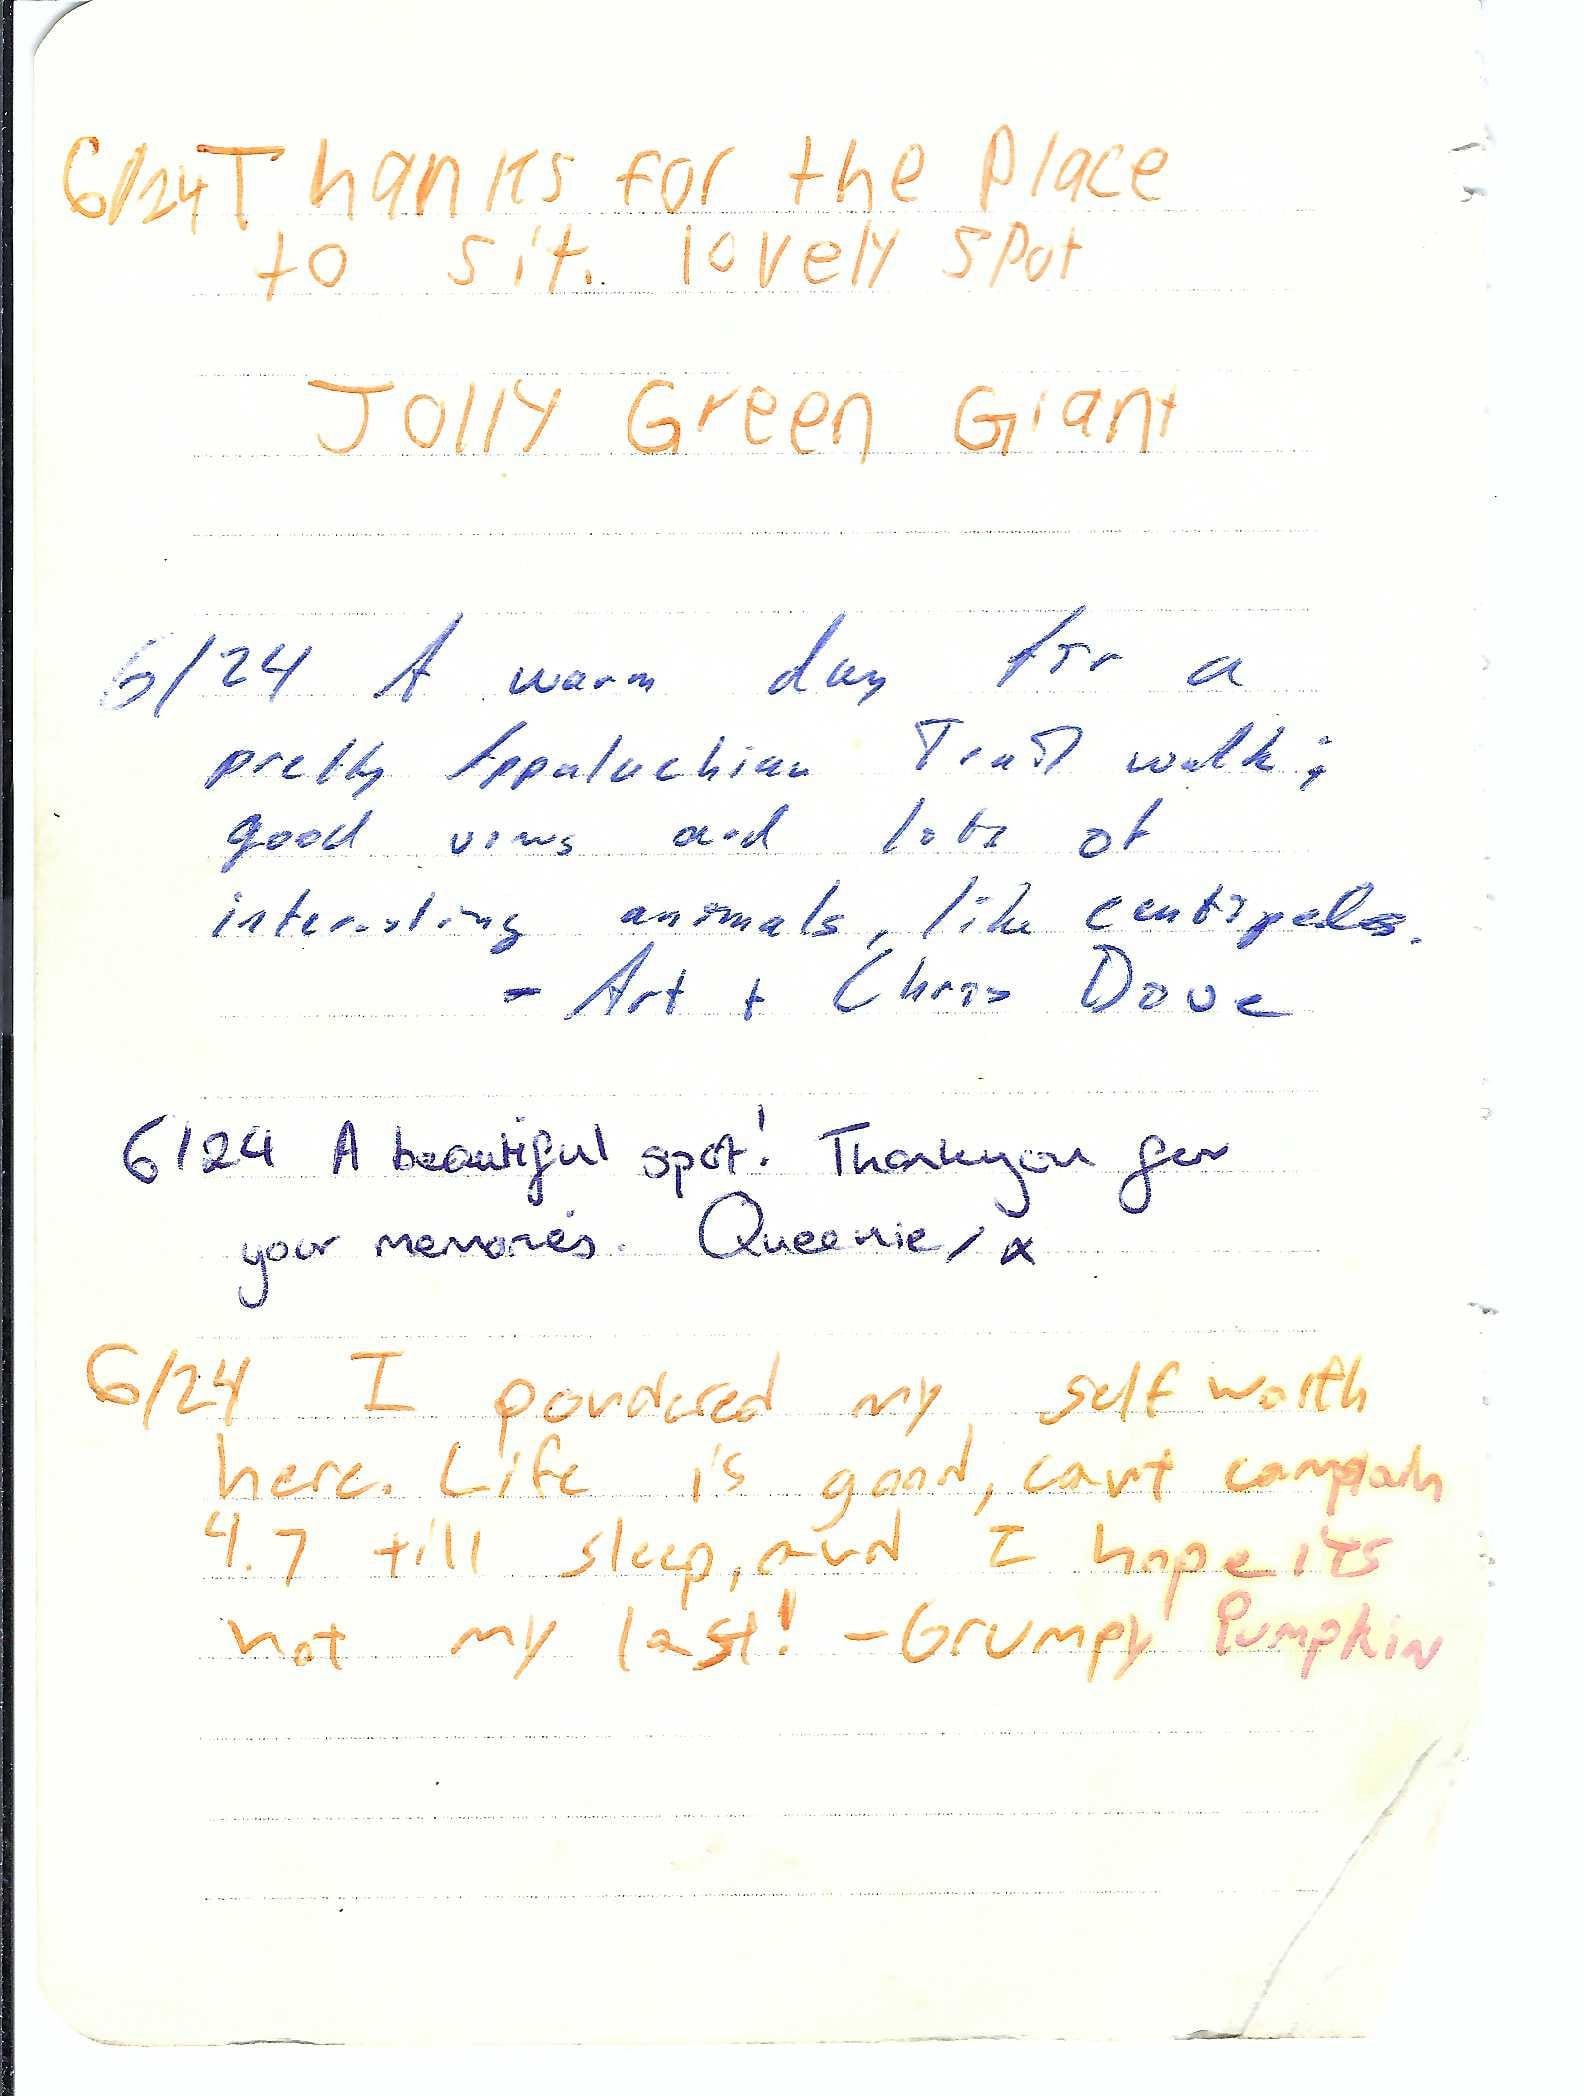 6/24 Thanks for the Place
to sit. lovely spot
Jolly Green Giant
6/24 A warm day for a
pretty Appalachian Trail walk;
good views and lots of
interesting animals, like centipedes.
- Art + Chris Dove
6/24 A beautiful spot! Thankyou for
your memories. Queenie, x
6/24 I pondered my self worth
here. Life is good, cant complain
4.7 till sleep, and I hope its
not my last! - Grumpy Pumpkin